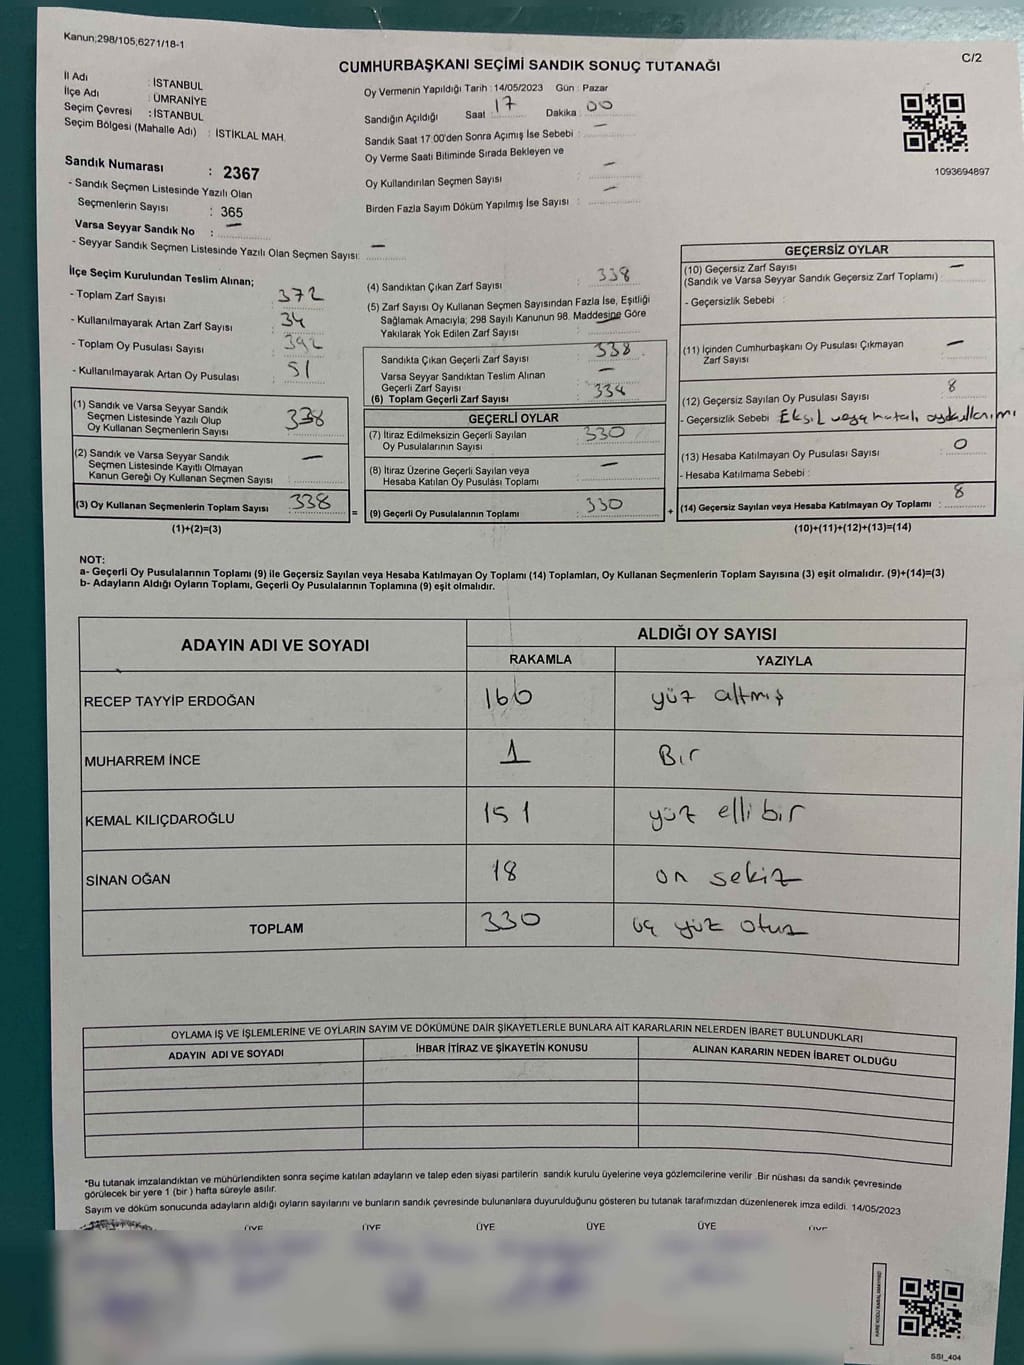 Kanun;298/105;6271/18-1
C/2
CUMHURBAŞKANI SEÇİMİ SANDIK SONUÇ TUTANAĞI
İl Adı : İSTANBUL
İlçe Adı : ÜMRANİYE
Seçim Çevresi : İSTANBUL
Seçim Bölgesi (Mahalle Adı) : İSTİKLAL MAH.
Sandık Numarası : 2367
- Sandık Seçmen Listesinde Yazılı Olan
Seçmenlerin Sayısı : 365
Varsa Seyyar Sandık No : —
- Seyyar Sandık Seçmen Listesinde Yazılı Olan Seçmen Sayısı: —
Oy Vermenin Yapıldığı Tarih : 14/05/2023 Gün : Pazar
Sandığın Açıldığı Saat 17 Dakika : 00
Sandık Saat 17:00'den Sonra Açımış İse Sebebi : —
Oy Verme Saati Bitiminde Sırada Bekleyen ve
Oy Kullandırılan Seçmen Sayısı : —
Birden Fazla Sayım Döküm Yapılmış İse Sayısı : —
1093694897
İlçe Seçim Kurulundan Teslim Alınan;
- Toplam Zarf Sayısı : 372
- Kullanılmayarak Artan Zarf Sayısı : 34
- Toplam Oy Pusulası Sayısı : 392
- Kullanılmayarak Artan Oy Pusulası : 51
(1) Sandık ve Varsa Seyyar Sandık
Seçmen Listesinde Yazılı Olup
Oy Kullanan Seçmenlerin Sayısı : 338
(2) Sandık ve Varsa Seyyar Sandık
Seçmen Listesinde Kayıtlı Olmayan
Kanun Gereği Oy Kullanan Seçmen Sayısı : —
(3) Oy Kullanan Seçmenlerin Toplam Sayısı : 338
(1)+(2)=(3)
(4) Sandıktan Çıkan Zarf Sayısı : 338
(5) Zarf Sayısı Oy Kullanan Seçmen Sayısından Fazla İse, Eşitliği
Sağlamak Amacıyla, 298 Sayılı Kanunun 98. Maddesine Göre
Yakılarak Yok Edilen Zarf Sayısı : —
Sandıkta Çıkan Geçerli Zarf Sayısı : 338
Varsa Seyyar Sandıktan Teslim Alınan
Geçerli Zarf Sayısı : —
(6) Toplam Geçerli Zarf Sayısı : 338
GEÇERLİ OYLAR
(7) İtiraz Edilmeksizin Geçerli Sayılan
Oy Pusulalarının Sayısı : 330
(8) İtiraz Üzerine Geçerli Sayılan veya
Hesaba Katılan Oy Pusulası Toplamı : —
= (9) Geçerli Oy Pusulalarının Toplamı : 330 +
GEÇERSİZ OYLAR
(10) Geçersiz Zarf Sayısı
(Sandık ve Varsa Seyyar Sandık Geçersiz Zarf Toplamı) : —
- Geçersizlik Sebebi :
(11) İçinden Cumhurbaşkanı Oy Pusulası Çıkmayan
Zarf Sayısı : —
(12) Geçersiz Sayılan Oy Pusulası Sayısı : 8
- Geçersizlik Sebebi : Eksil veya hatalı oy kullanımı
(13) Hesaba Katılmayan Oy Pusulası Sayısı : 0
- Hesaba Katılmama Sebebi :
(14) Geçersiz Sayılan veya Hesaba Katılmayan Oy Toplamı : 8
(10)+(11)+(12)+(13)=(14)
NOT:
a- Geçerli Oy Pusulalarının Toplamı (9) ile Geçersiz Sayılan veya Hesaba Katılmayan Oy Toplamı (14) Toplamları, Oy Kullanan Seçmenlerin Toplam Sayısına (3) eşit olmalıdır. (9)+(14)=(3)
b- Adayların Aldığı Oyların Toplamı, Geçerli Oy Pusulalarının Toplamına (9) eşit olmalıdır.
ADAYIN ADI VE SOYADI ALDIĞI OY SAYISI
RAKAMLA YAZIYLA
RECEP TAYYİP ERDOĞAN 160 yüz altmış
MUHARREM İNCE 1 Bir
KEMAL KILIÇDAROĞLU 151 yüz elli bir
SİNAN OĞAN 18 on sekiz
TOPLAM 330 üç yüz otuz
OYLAMA İŞ VE İŞLEMLERİNE VE OYLARIN SAYIM VE DÖKÜMÜNE DAİR ŞİKAYETLERLE BUNLARA AİT KARARLARIN NELERDEN İBARET BULUNDUKLARI
ADAYIN ADI VE SOYADI İHBAR İTİRAZ VE ŞİKAYETİN KONUSU ALINAN KARARIN NEDEN İBARET OLDUĞU
*Bu tutanak imzalandıktan ve mühürlendikten sonra seçime katılan adayların ve talep eden siyasi partilerin sandık kurulu üyelerine veya gözlemcilerine verilir .Bir nüshası da sandık çevresinde
görülecek bir yere 1 (bir ) hafta süreyle asılır.
Sayım ve döküm sonucunda adayların aldığı oyların sayılarını ve bunların sandık çevresinde bulunanlara duyurulduğunu gösteren bu tutanak tarafımızdan düzenlenerek imza edildi. 14/05/2023
ÜYE ÜYE ÜYE ÜYE ÜYE ÜYE
SSI_404